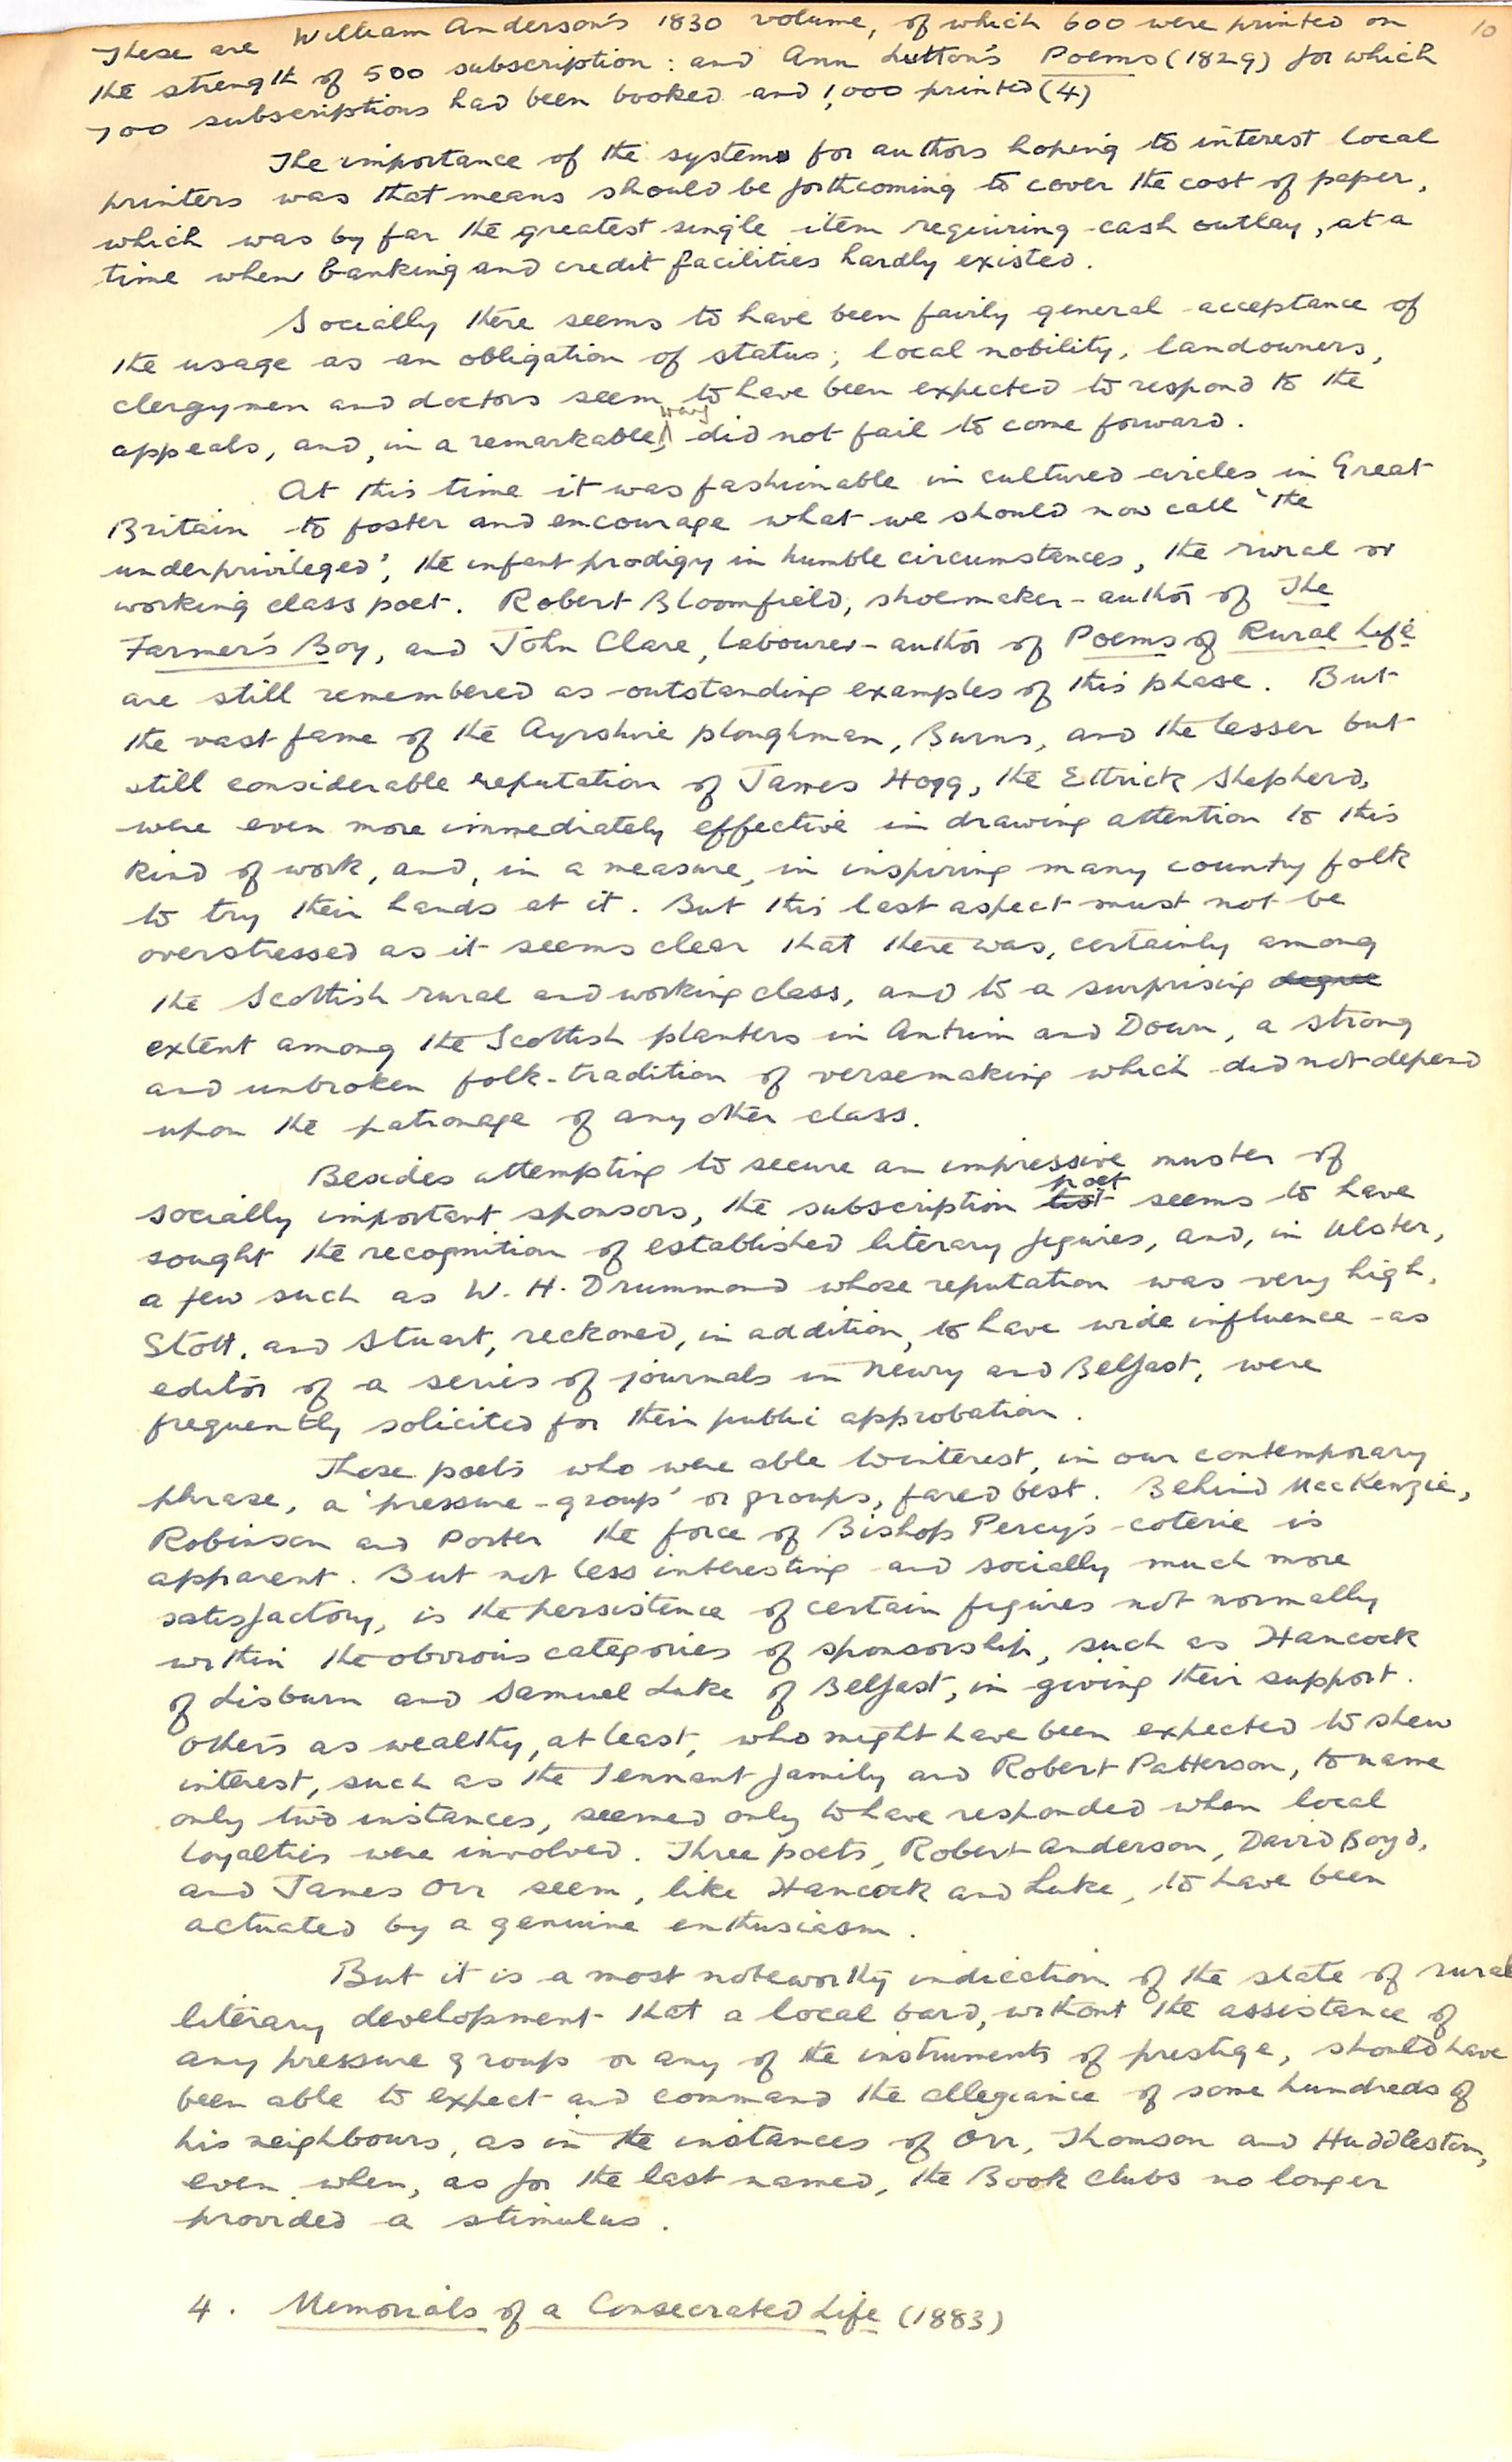 10
These are William Anderson's 1830 volume, of which 600 were printed on
the strength of 500 subscription: and Ann Lutton's Poems (1829) for which
700 subscriptions had been booked and 1,000 printed (4)
The importance of the system for authors hoping to interest local
printers was that means should be forthcoming to cover the cost of paper,
which was by far the greatest single item requiring cash outlay, at a
time when banking and credit facilities hardly existed.
Socially there seems to have been fairly general acceptance of
the usage as an obligation of status; local nobility, landowners,
clergymen and doctors seem to have been expected to respond to the
appeals, and, in a remarkable way, did not fail to come forward.
At this time it was fashionable in cultured circles in Great
Britain to foster and encourage what we should now call 'the
underprivileged', the infant prodigy in humble circumstances, the rural or
working class poet. Robert Bloomfield, shoemaker-author of The
Farmer's Boy, and John Clare, labourer-author of Poems of Rural Life
are still remembered as outstanding examples of this phase. But
the vast fame of the Ayrshire ploughman, Burns, and the lesser but
still considerable reputation of James Hogg, the Ettrick Shepherd,
were even more immediately effective in drawing attention to this
kind of work, and, in a measure, in inspiring many country folk
to try their hands at it. But this last aspect must not be
overstressed as it seems clear that there was, certainly among
the Scottish rural and working class, and to a surprising degree
extent among the Scottish planters in Antrim and Down, a strong
and unbroken folk-tradition of versemaking which did not depend
upon the patronage of any other class.
Besides attempting to secure an impressive muster of
socially important sponsors, the subscription list poet seems to have
sought the recognition of established literary figures, and, in Ulster,
a few such as W. H. Drummond whose reputation was very high,
Stott, and Stuart, reckoned, in addition, to have wide influence as
editor of a series of journals in Newry and Belfast, were
frequently solicited for their public approbation.
Those poets who were able to interest, in our contemporary
phrase, a 'pressure-group' or groups, fared best. Behind MacKenzie,
Robinson and Porter the force of Bishop Percy's coterie is
apparent. But not less interesting and socially much more
satisfactory, is the persistence of certain figures not normally
within the obvious categories of sponsorship, such as Hancock
of Lisburn and Samuel Luke of Belfast, in giving their support.
Others as wealthy, at least, who might have been expected to shew
interest, such as the Tennant family and Robert Patterson, to name
only two instances, seemed only to have responded when local
loyalties were involved. Three poets, Robert Anderson, David Boyd,
and James Orr seem, like Hancock and Luke, to have been
actuated by a genuine enthusiasm.
But it is a most noteworthy indication of the state of rural
literary development that a local bard, without the assistance of
any pressure group or any of the instruments of prestige, should have
been able to expect and command the allegiance of some hundreds of
his neighbours, as in the instances of Orr, Thomson and Huddleston,
even when, as for the last named, the Book Clubs no longer
provided a stimulus.
4. Memorials of a Consecrated Life (1883)